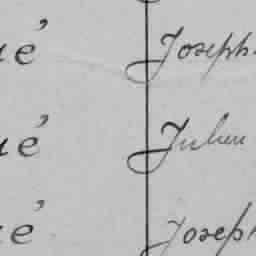 ué Joseph
ué Julien
ué Joseph